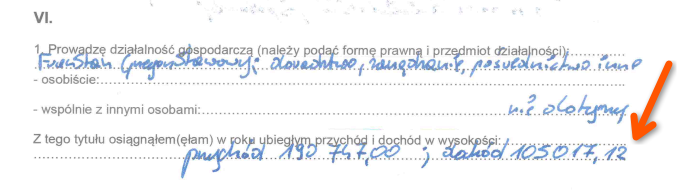 VI.
1. Prowadzę działalność gospodarczą (należy podać formę prawną i przedmiot działalności):
doradztwo, zarządzanie, pośrednictwo inne
- osobiście:
- wspólnie z innymi osobami:
nie dotyczy
Z tego tytułu osiągnąłem(ęłam) w roku ubiegłym przychód i dochód w wysokości:
przychód 190 747,00 ; dochód 105017,12